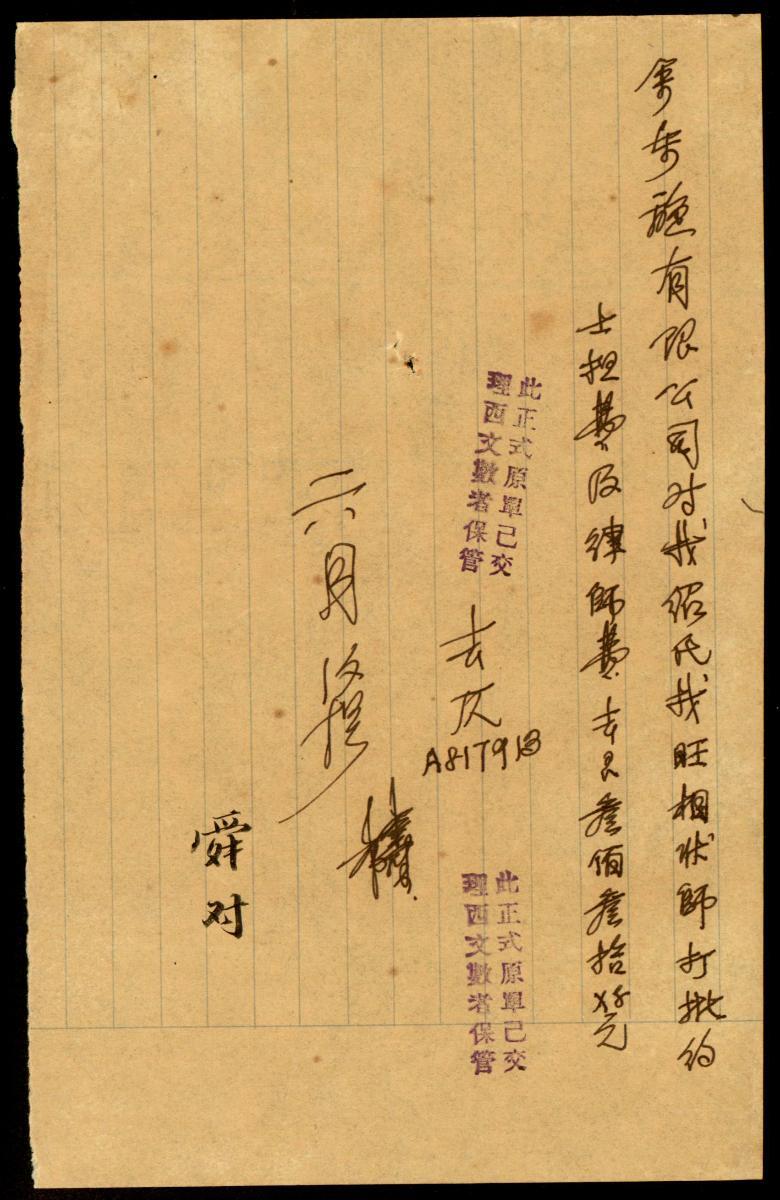 有限公司对我紹氏找旺相状師打批约
士担費及律師費去艮叁佰叁拾元
此正式原單已交
理西文數者保管
去仄
A817913
此正式原單已交
理西文數者保管
六月
舜对